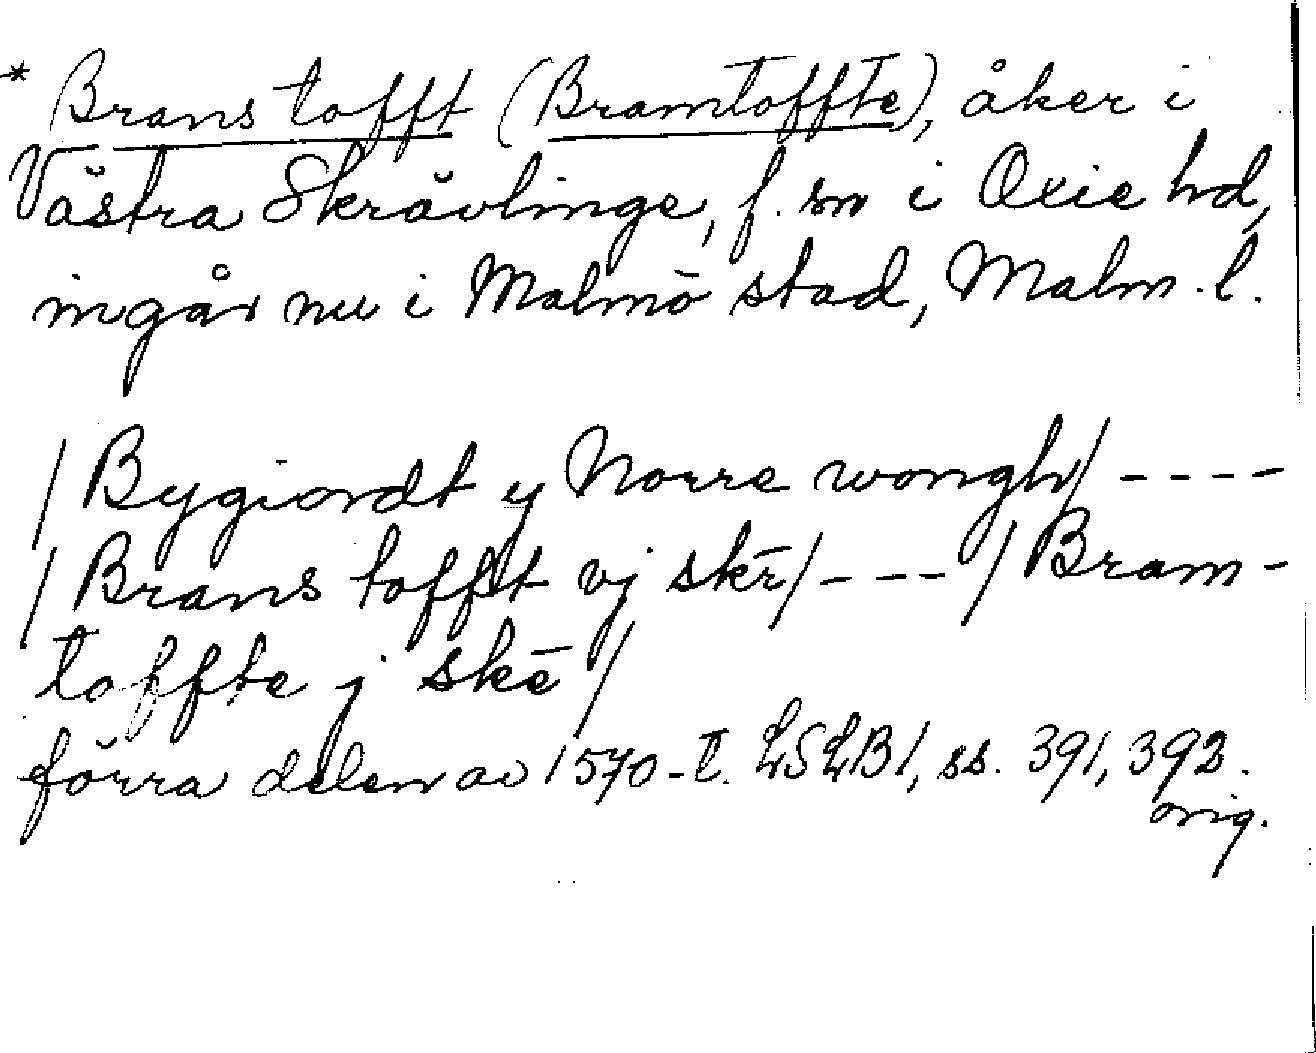 * Brans tofft (Bramtoffte), åker i
Västra Skrävlinge, f. sn i Oxie hd,
ingår nu i Malmö stad, Malm. l.
/ Bygiordt y Norre wongh / - - - -
/ Brans tofft vj skē / - - - / Bram-
toffte j skē /
förra delen av 1570-t. LSLB1, ss. 391, 392.
orig.